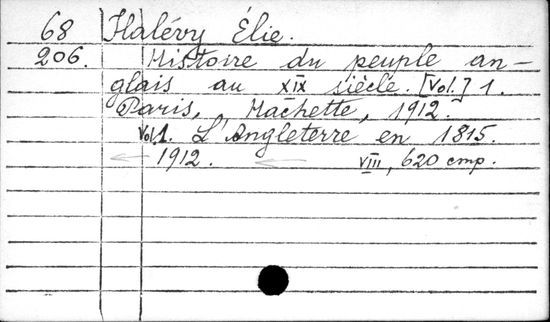 68 Halévy Élie.
206. Histoire du peuple an-
glais au XIX siècle. [Vol.] 1.
Paris, Hachette, 1912.
Vol. 1. L'Angleterre en 1815.
1912. VIII, 620 стр.